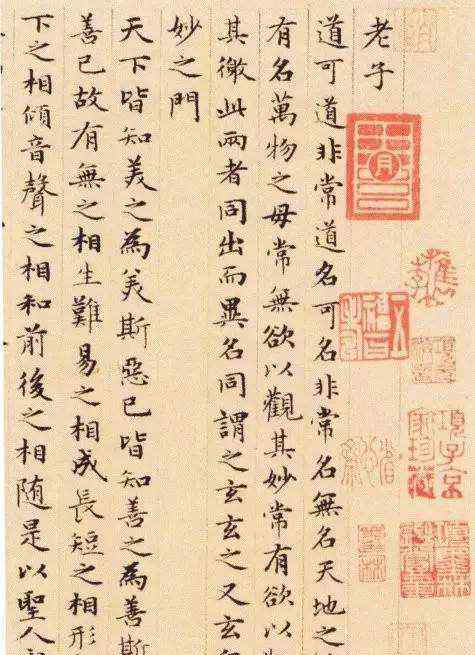 老子
道可道非常道名可名非常名無名天地之
有名萬物之母常無欲以觀其妙常有欲以
其徼此兩者同出而異名同謂之玄玄之又玄
妙之門
天下皆知美之為美斯惡已皆知善之為善斯
善已故有無之相生難易之相成長短之相形
下之相傾音聲之相和前後之相随是以聖人
項子京
家珍藏